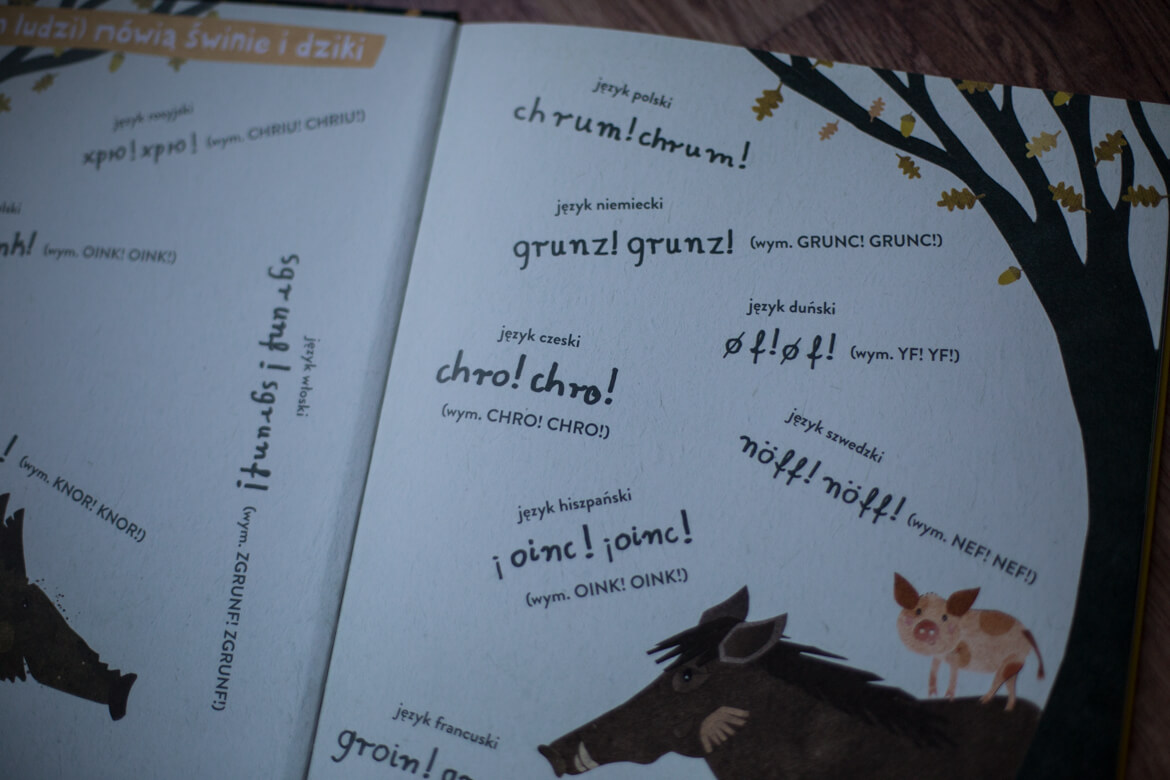 ludzi) mówią świnie i dziki
język rosyjski
хрю! хрю! (wym. CHRIU! CHRIU!)
(wym. OINK! OINK!)
język włoski
sgrunf! sgrunf!
(wym. ZGRUNF! ZGRUNF!)
(wym. KNOR! KNOR!)
język polski
chrum! chrum!
język niemiecki
grunz! grunz! (wym. GRUNC! GRUNC!)
język duński
øf! øf! (wym. YF! YF!)
język czeski
chro! chro!
(wym. CHRO! CHRO!)
język szwedzki
nöff! nöff! (wym. NEF! NEF!)
język hiszpański
¡oinc! ¡oinc!
(wym. OINK! OINK!)
język francuski
groin!